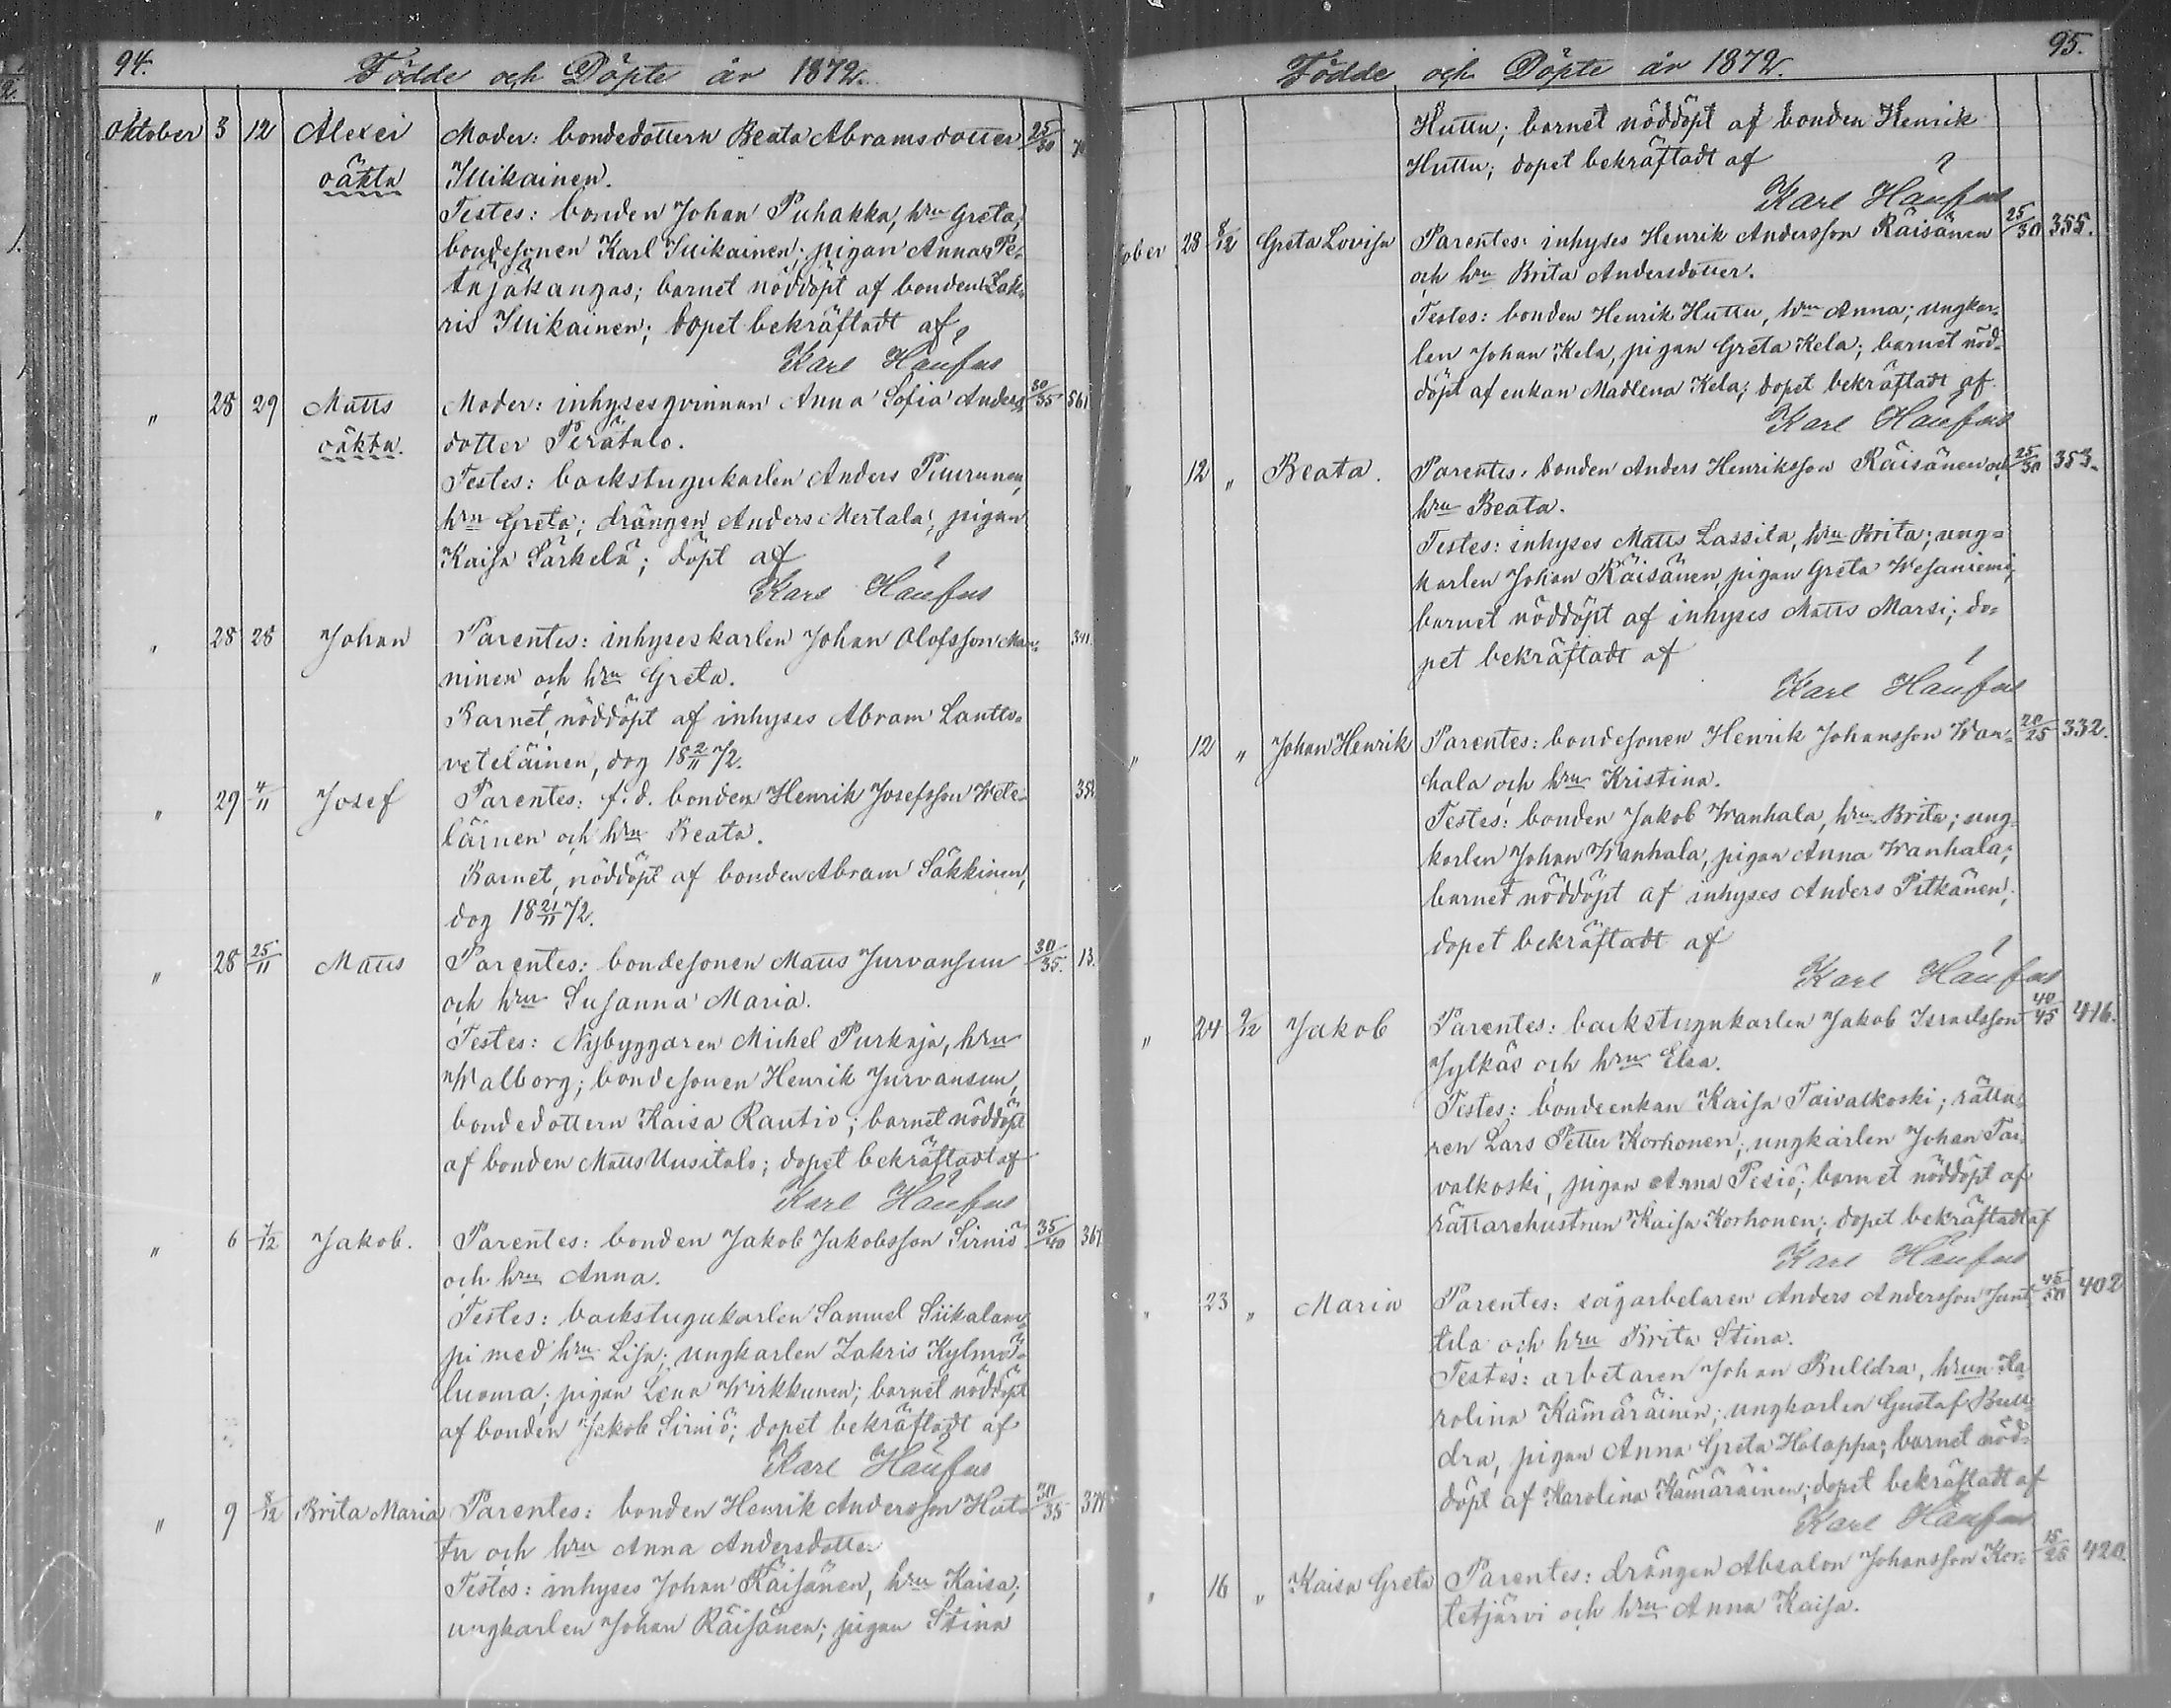 94.
Födde och Döpte år 1872.
Oktober 3 12 Alexei Moder: bondedottern Beata Abramsdotter 25/30
oäkta Illikainen.
Testes: bonden Johan Puhakka, hru Greta;
bondesonen Karl Illikainen, pigan Anna Pe-
täjäkangas; barnet nöddöpt af bonden Zak-
ris Illikainen; dopet bekräftadt af
Karl
" 28 29 Matts Moder: inhysesqvinnan Anna Sofia Anders- 30/35 561
oäkta. dotter Perätalo.
Testes: backstugukarlen Anders Piurunen,
hru Greta; drängen Anders Mertala, pigan
Kaisa Särkelä; döpt af
Karl
" 28 28 Johan Parentes: inhyseskarlen Johan Olofsson Man-
ninen och hru Greta.
Barnet, nöddöpt af inhyses Abram Lantto,
veteläinen, dog 18 2/11 72.
" 29 4/11 Josef Parentes: f.d. bonden Henrik Josefsson Wete-
läinen och hru Beata.
Barnet, nöddöpt af bonden Abram Säkkinen,
dog 18 21/11 72.
" 28 25/11 Matts Parentes: bondesonen Matts Jurvansuu 30/35. 13.
och hru Susanna Maria.
Testes: Nybyggaren Michel Purkaja, hru
Walborg; bondesonen Henrik Jurvansuu,
bondedottern Kaisa Rautio; barnet nöddöpt
af bonden Matts Uusitalo; dopet bekräftadt af
Karl
" 6 1/12 Jakob. Parentes: bonden Jakob Jakobsson Sirniö 35/40
och hru Anna.
Testes: backstugukarlen Samuel Siikalam-
pi med hru Lisa; ungkarlen Zakris Kylmä-
luoma; pigan Lena Wirkkunen; barnet nöddöpt
af bonden Jakob Sirniö; dopet bekräftadt af
Karl
" 9 8/12 Brita Maria Parentes: bonden Henrik Andersson Hut- 30/35
tu och hru Anna Andersdotter
Testes: inhyses Johan Räisänen, hru Kaisa;
ungkarlen Johan Räisänen; pigan Stina
95.
Födde och Döpte år 1872.
Huttu; barnet nöddöpt af bonden Henrik
Huttu; dopet bekräftadt af
Karl
ober 28 8/12 Greta Lovisa Parentes: inhyses Henrik Andersson Räisänen 25/30 355.
och hru Brita Andersdotter.
Testes: bonden Henrik Huttu, hru Anna; ungkar-
len Johan Kela, pigan Greta Kela; barnet nöd-
döpt af enkan Madlena Kela; dopet bekräftadt af
Karl
" 12 " Beata. Parentes: bonden Anders Henriksson Räisänen och 25/30 353.
hru Beata.
Testes: inhyses Matts Lassila, hru Brita; ung-
karlen Johan Räisänen, pigan Greta Wesaniemi;
barnet nöddöpt af inhyses Matts Marsi; do-
pet bekräftadt af
Karl
" 12 " Johan Henrik Parentes: bondesonen Henrik Johansson Wan- 20/25 332.
hala och hru Kristina.
Testes: bonden Jakob Wanhala, hru Brita; ung-
karlen Johan Wanhala, pigan Anna Wanhala;
barnet nöddöpt af inhyses Anders Pitkänen;
dopet bekräftadt af
Karl
" 24 9/12 Jakob Parentes: backstugukarlen Jakob Israelsson 40/45 416.
Jylkäs och hru Elsa.
Testes: bondeenkan Kaisa Taivalkoski; rätta-
ren Lars Petter Korhonen; ungkarlen Johan Tai-
valkoski, pigan Anna Pesiö; barnet nöddöpt af
rättarehustrun Kaisa Korhonen; dopet bekräftadt af
Karl
" 23 " Maria Parentes: sågarbetaren Anders Andersson Junt- 45/50 402
tila och hru Brita Stina.
Testes: arbetaren Johan Bulldra, hrun Ka-
rolina Kämäräinen; ungkarlen Gustaf Bull-
dra, pigan Anna Greta Holappa; barnet nöd-
döpt af Karolina Kämäräinen; dopet bekräftadt af
Karl
" 16 " Kaisa Greta Parentes: drängen Absalon Johansson Kor- 420.
tetjärvi och hru Anna Kaisa.